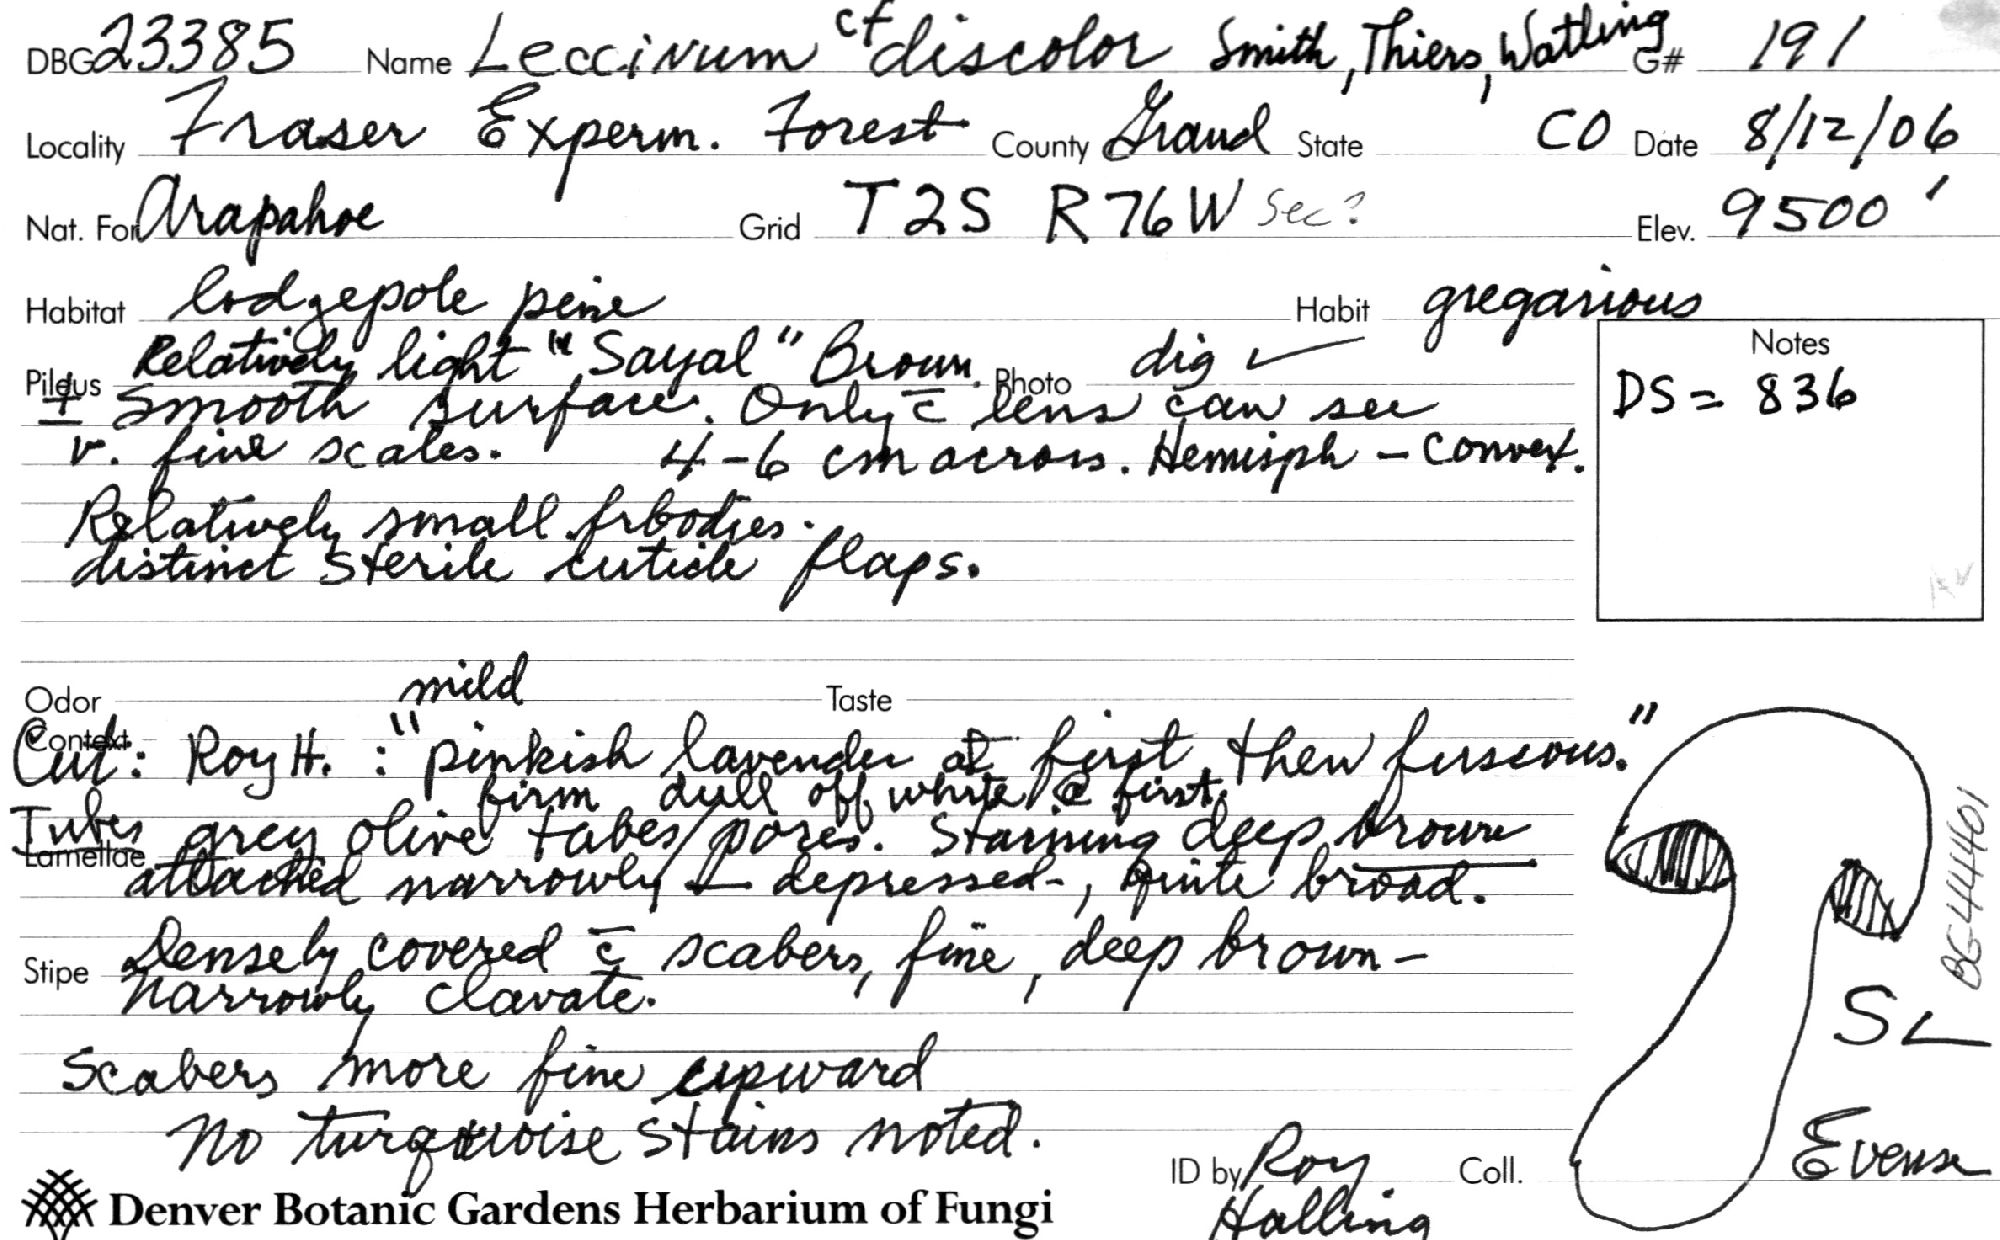 DBG 23385 Name Leccinum cf discolor Smith, Thiers, Watling G# 191
Locality Fraser Experm. Forest County Grand State CO Date 8/12/06
Nat. For Arapahoe Grid T2S R76W Sec? Elev. 9500'
Habitat lodgepole pine Habit gregarious
Pileus Relatively light "Sayal" Brown. Photo dig ✓
± Smooth surface. Only c̄ lens can see
v. fine scales. 4-6 cm across. Hemisph - Convex.
Relatively small frbodies.
distinct sterile cuticle flaps.
Notes
DS = 836
Odor mild Taste
Context
Cut: Roy H. : "pinkish lavender at first, then fuscous."
firm dull off white @ first.
Tubes grey olive tubes/pores. Staining deep brown
Lamellae
attached narrowly + depressed-, quite broad.
Stipe Densely covered c̄ scabers, fine, deep brown -
narrowly clavate.
Scabers more fine upward
No turquoise stains noted.
ID by Roy Halling Coll. SL Evenson
BG444401
Denver Botanic Gardens Herbarium of Fungi